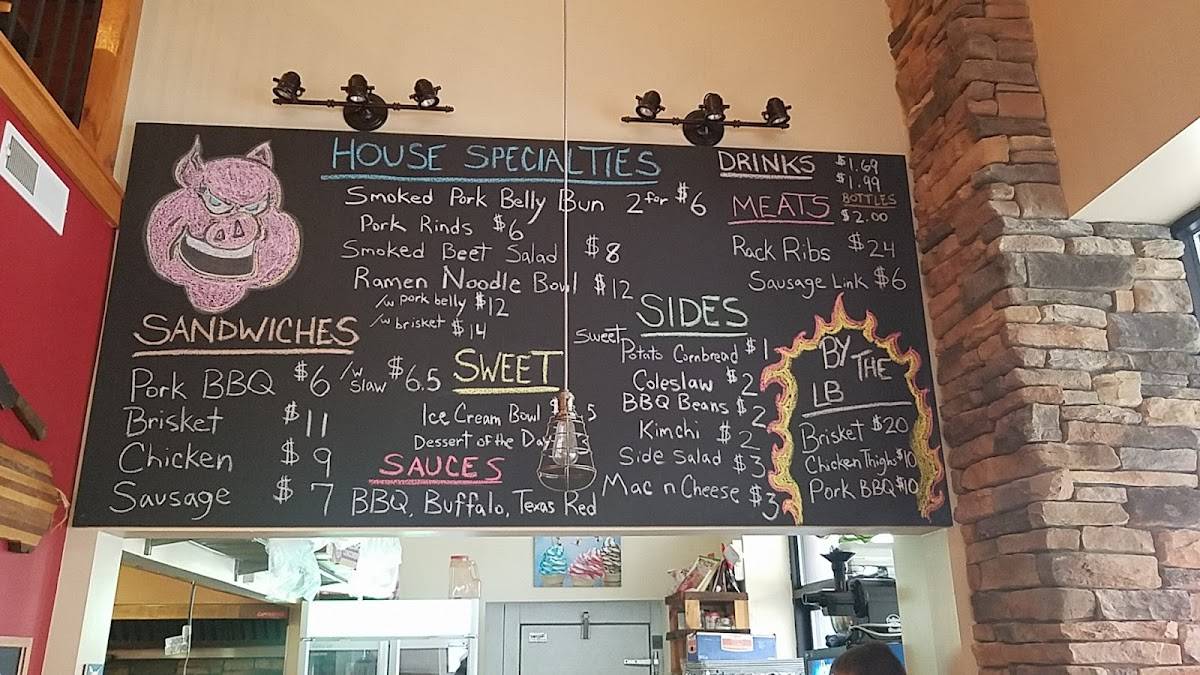 HOUSE SPECIALTIES
Smoked Pork Belly Bun 2 for $6
Pork Rinds $6
Smoked Beet Salad $8
Ramen Noodle Bowl $12
/w pork belly $12
/w brisket $14
SANDWICHES
Pork BBQ $6 /w slaw $6.5
Brisket $11
Chicken $9
Sausage $7
SWEET
Ice Cream Bowl 5
Dessert of the Day
SAUCES
BBQ, Buffalo, Texas Red
DRINKS $1.69
$1.99
BOTTLES
$2.00
MEATS
Rack Ribs $24
Sausage Link $6
SIDES
Sweet Potato Cornbread $1
Coleslaw $2
BBQ Beans $2
Kimchi $2
Side Salad $3
Mac n Cheese $3
BY THE
LB
Brisket $20
Chicken Thighs $10
Pork BBQ $10